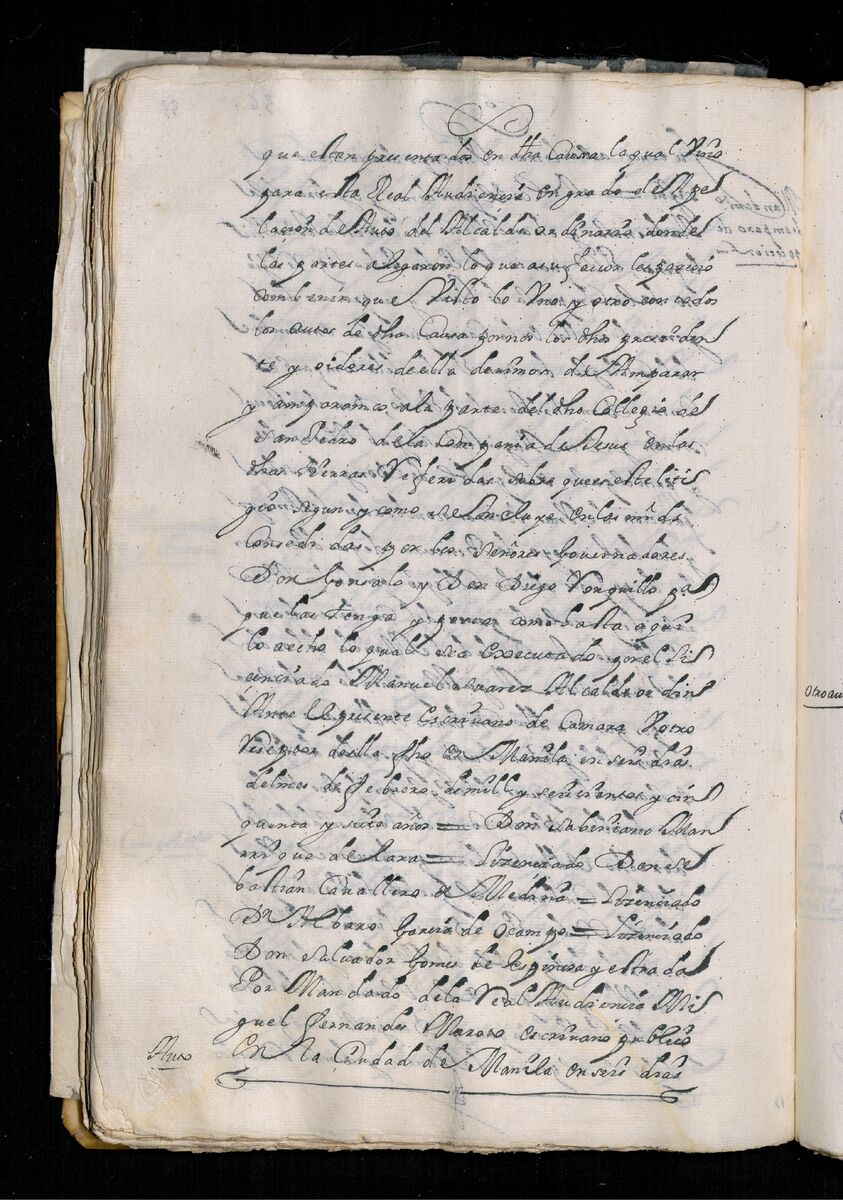 que estan presentados en dha Causa la qual Vino
para esta Real Audiencia en grado de Ape
lacion de Auto del Alcalde ordinario donde
las partes alegaron lo que a su fauor les parecio
combenir que Visto lo Vno y otro con todos
los autos de dha Causa por nos los dhos preciden
te y oidores de ella deuimos de Amparar
y amparamos a la parte del dho Collegio de
San Pedro de la Compania de Jesus en las
dhas tierras Referidas sobre que es este liti
gio segun y como se Yncluye en las mrds
Consedidas por los Señores Gouernadores
Don Gonsalo y Don Diego Ronquillo pa
que las tenga y posea como hasta aqui
lo a echo lo qual sea executado por el Li
cenciado Manuel aluarez Alcalde ordin
Ante el presente Escriuano de Camara V otro
Reseptor de ella fho en Manila en seis dias
del mes de febrero de mill y seiscientos y cin
quenta y siete años = Don Sabiniano Man
rrique de Lara = Lizenciado Don Se
bastian Cauallero de Medina = Lizenciado
Dn Albaro Garcia de Ocampo = Lizenciado
Don Saluador Gomes de Espinosa y estrada
Por Mandado de la Real Audiencia Mi
guel fernandes Maroto escriuano publico
Auto
En la Ciudad de Manila en seis dias
Otro au